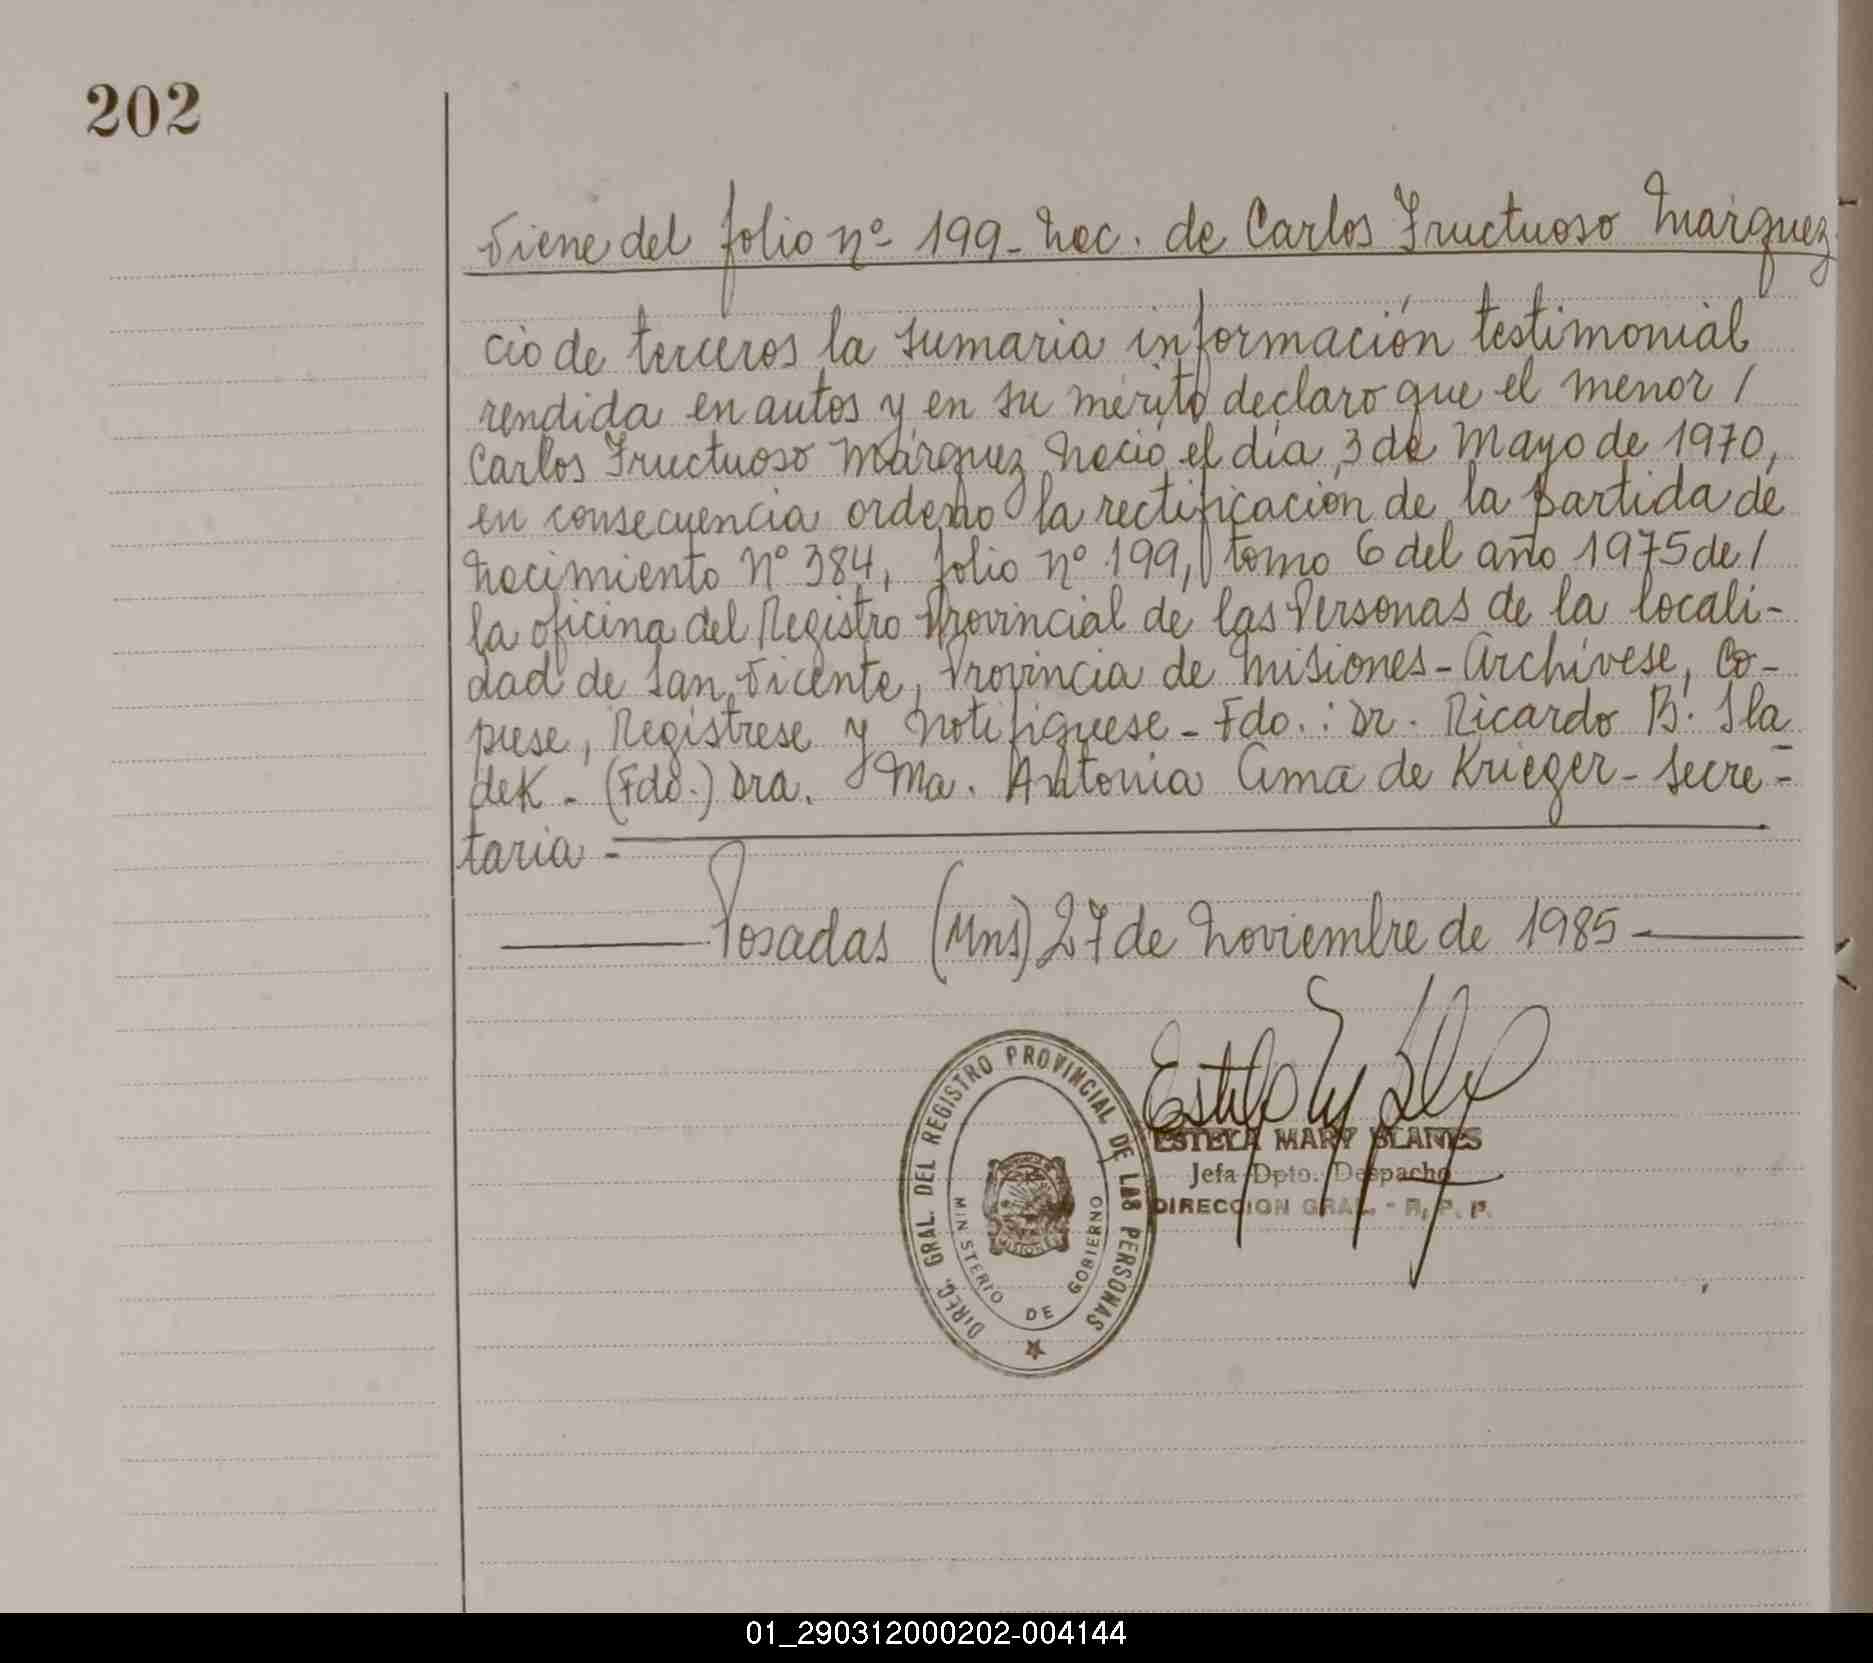 202
Viene del folio nº 199 - Nac. de Carlos Fructuoso Márquez
cio de terceros la sumaria información testimonial
rendida en autos y en su mérito declaro que el menor /
Carlos Fructuoso Márquez Nació el día 3 de Mayo de 1970,
en consecuencia ordeno la rectificación de la partida de
Nacimiento Nº 384, folio nº 199, tomo 6 del año 1975 de /
la oficina del Registro Provincial de las Personas de la locali-
dad de San Vicente, Provincia de Misiones - Archívese, Co-
piese, Regístrese y Notifiquese - Fdo.: Dr. Ricardo B. Sla
dek - (Fdo.) Dra. Ma. Antonia Cima de Krieger - Secre-
taria -
Posadas (Mns) 27 de Noviembre de 1985
DIREC. GRAL. DEL REGISTRO PROVINCIAL DE LAS PERSONAS
MINISTERIO DE GOBIERNO
MISIONES
ESTELA MARY BLANES
Jefa Dpto. Despacho
DIRECCION GRAL. - R. P. P.
01_290312000202-004144